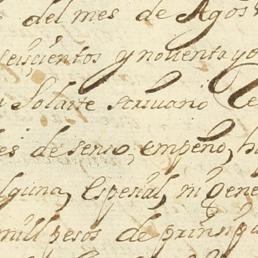 del mes de Agos
seiscientos y noventa y o
Solarte
es de senso, empeño, h
alguna, Espesial, ni gene
mill pesos de prinsip